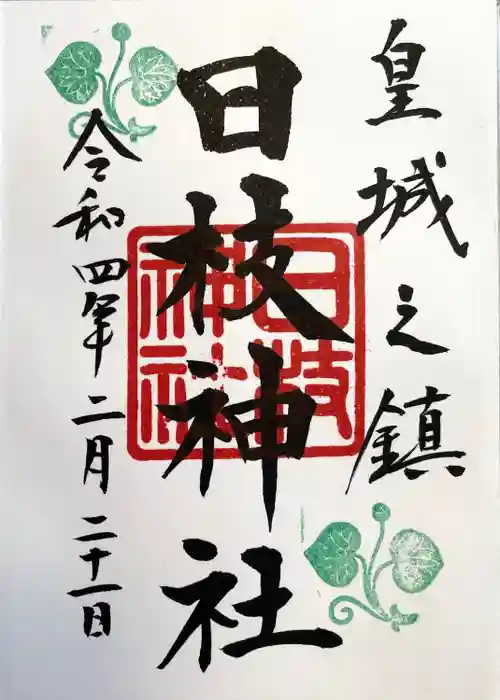 皇城之鎮
日枝神社
日枝
神社
令和四年二月二十一日